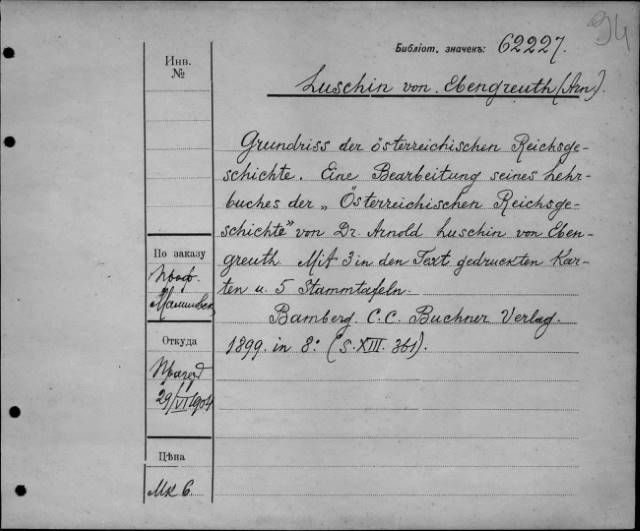 94
Библіот. значекъ: 62227.
Инв.
№
Luschin von Ebengreuth (Arn).
Grundriss der österreichischen Reichsge-
schichte. Eine Bearbeitung seines Lehr-
buches der „Österreichischen Reichsge-
schichte" von Dr. Arnold Luschin von Eben-
greuth Mit 3 in den Text gedruckten Kar-
ten u. 5 Stammtafeln.
Bamberg. C. C. Buchner Verlag.
1899. in 8° (S. XIII. 361).
По заказу
Проф.
Откуда
29/VI 1904
Цѣна
Мк 6.